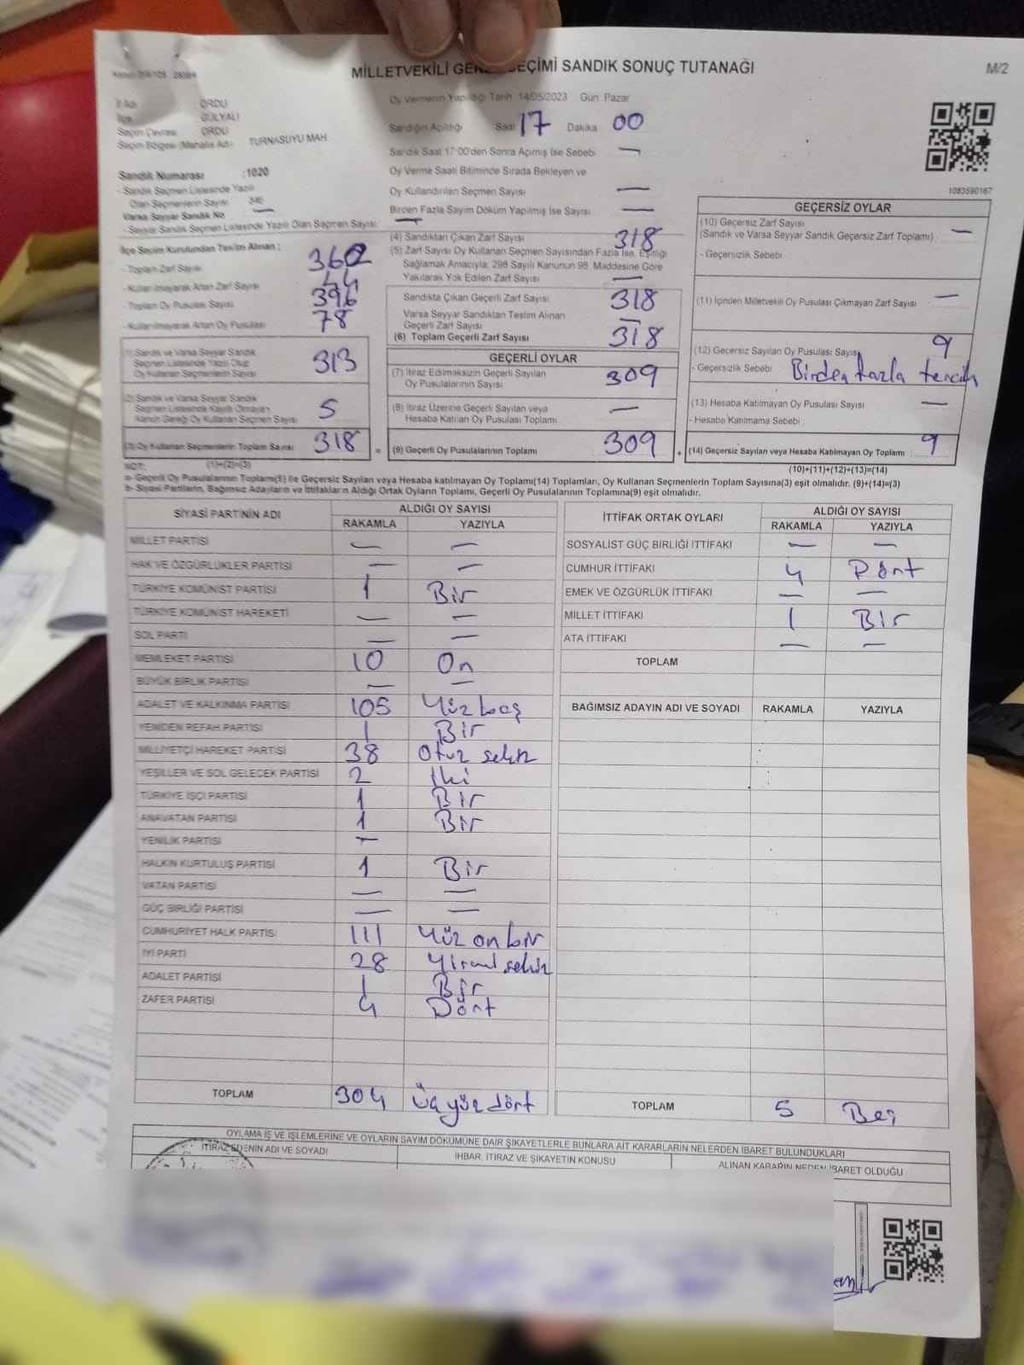 MİLLETVEKİLİ GENEL SEÇİMİ SANDIK SONUÇ TUTANAĞI
M/2
Oy Vermenin Yapıldığı Tarih 14/05/2023 Gün: Pazar
İl Adı ORDU
İlçe GÜLYALI
Seçim Çevresi ORDU
Seçim Bölgesi (Mahalle Adı) TURNASUYU MAH
Sandığın Açıldığı Saat 17 Dakika 00
Sandık Saat 17:00'den Sonra Açılmış İse Sebebi —
Sandık Numarası :1020
- Sandık Seçmen Listesinde Yazılı
Olan Seçmenlerin Sayısı
Varsa Seyyar Sandık No —
- Seyyar Sandık Seçmen Listesinde Yazılı Olan Seçmen Sayısı: —
Oy Verme Saati Bitiminde Sırada Bekleyen ve
Oy Kullandırılan Seçmen Sayısı —
Birden Fazla Sayım Döküm Yapılmış İse Sayısı —
1083590167
İlçe Seçim Kurulundan Teslim Alınan :
- Toplam Zarf Sayısı 360
- Kullanılmayarak Artan Zarf Sayısı
- Toplam Oy Pusulası Sayısı 396
- Kullanılmayarak Artan Oy Pusulası 78
(1) Sandık ve Varsa Seyyar Sandık
Seçmen Listesinde Yazılı Olup
Oy Kullanan Seçmenlerin Sayısı 313
(2) Sandık ve Varsa Seyyar Sandık
Seçmen Listesinde Kayıtlı Olmayan
Kanun Gereği Oy Kullanan Seçmen Sayısı 5
(3) Oy Kullanan Seçmenlerin Toplam Sayısı 318
(4) Sandıktan Çıkan Zarf Sayısı 318
(5) Zarf Sayısı Oy Kullanan Seçmen Sayısından Fazla İse, Eşitliği
Sağlamak Amacıyla; 298 Sayılı Kanunun 98. Maddesine Göre
Yakılarak Yok Edilen Zarf Sayısı —
Sandıkta Çıkan Geçerli Zarf Sayısı 318
Varsa Seyyar Sandıktan Teslim Alınan
Geçerli Zarf Sayısı —
(6) Toplam Geçerli Zarf Sayısı 318
GEÇERLİ OYLAR
(7) İtiraz Edilmeksizin Geçerli Sayılan
Oy Pusulalarının Sayısı 309
(8) İtiraz Üzerine Geçerli Sayılan veya
Hesaba Katılan Oy Pusulası Toplamı —
= (9) Geçerli Oy Pusulalarının Toplamı 309
GEÇERSİZ OYLAR
(10) Geçersiz Zarf Sayısı
(Sandık ve Varsa Seyyar Sandık Geçersiz Zarf Toplamı) —
- Geçersizlik Sebebi :
(11) İçinden Milletvekili Oy Pusulası Çıkmayan Zarf Sayısı —
(12) Geçersiz Sayılan Oy Pusulası Sayısı 9
- Geçersizlik Sebebi Birden fazla tercih
(13) Hesaba Katılmayan Oy Pusulası Sayısı —
- Hesaba Katılmama Sebebi :
+ (14) Geçersiz Sayılan veya Hesaba Katılmayan Oy Toplamı 9
NOT: (1)+(2)=(3)
(10)+(11)+(12)+(13)=(14)
a- Geçerli Oy Pusulalarının Toplamı(9) ile Geçersiz Sayılan veya Hesaba katılmayan Oy Toplamı(14) Toplamları, Oy Kullanan Seçmenlerin Toplam Sayısına(3) eşit olmalıdır. (9)+(14)=(3)
b- Siyasi Partilerin, Bağımsız Adayların ve İttifakların Aldığı Ortak Oyların Toplamı, Geçerli Oy Pusulalarının Toplamına(9) eşit olmalıdır.
SİYASİ PARTİNİN ADI ALDIĞI OY SAYISI
RAKAMLA YAZIYLA
MİLLET PARTİSİ — —
HAK VE ÖZGÜRLÜKLER PARTİSİ — —
TÜRKİYE KOMÜNİST PARTİSİ 1 Bir
TÜRKİYE KOMÜNİST HAREKETİ — —
SOL PARTİ — —
MEMLEKET PARTİSİ 10 On
BÜYÜK BİRLİK PARTİSİ — —
ADALET VE KALKINMA PARTİSİ 105 Yüz beş
YENİDEN REFAH PARTİSİ 1 Bir
MİLLİYETÇİ HAREKET PARTİSİ 38 Otuz sekiz
YEŞİLLER VE SOL GELECEK PARTİSİ 2 İki
TÜRKİYE İŞÇİ PARTİSİ 1 Bir
ANAVATAN PARTİSİ 1 Bir
YENİLİK PARTİSİ —
HALKIN KURTULUŞ PARTİSİ 1 Bir
VATAN PARTİSİ — —
GÜÇ BİRLİĞİ PARTİSİ — —
CUMHURİYET HALK PARTİSİ 111 Yüz on bir
İYİ PARTİ 28 Yirmi sekiz
ADALET PARTİSİ 1 Bir
ZAFER PARTİSİ 4 Dört
TOPLAM 304 Üç yüz dört
İTTİFAK ORTAK OYLARI ALDIĞI OY SAYISI
RAKAMLA YAZIYLA
SOSYALİST GÜÇ BİRLİĞİ İTTİFAKI — —
CUMHUR İTTİFAKI 4 Dört
EMEK VE ÖZGÜRLÜK İTTİFAKI — —
MİLLET İTTİFAKI 1 Bir
ATA İTTİFAKI — —
TOPLAM
BAĞIMSIZ ADAYIN ADI VE SOYADI RAKAMLA YAZIYLA
TOPLAM 5 Beş
OYLAMA İŞ VE İŞLEMLERİNE VE OYLARIN SAYIM DÖKÜMÜNE DAİR ŞİKAYETLERLE BUNLARA AİT KARARLARIN NELERDEN İBARET BULUNDUKLARI
İTİRAZ EDENİN ADI VE SOYADI İHBAR, İTİRAZ VE ŞİKAYETİN KONUSU ALINAN KARARIN NEDEN İBARET OLDUĞU